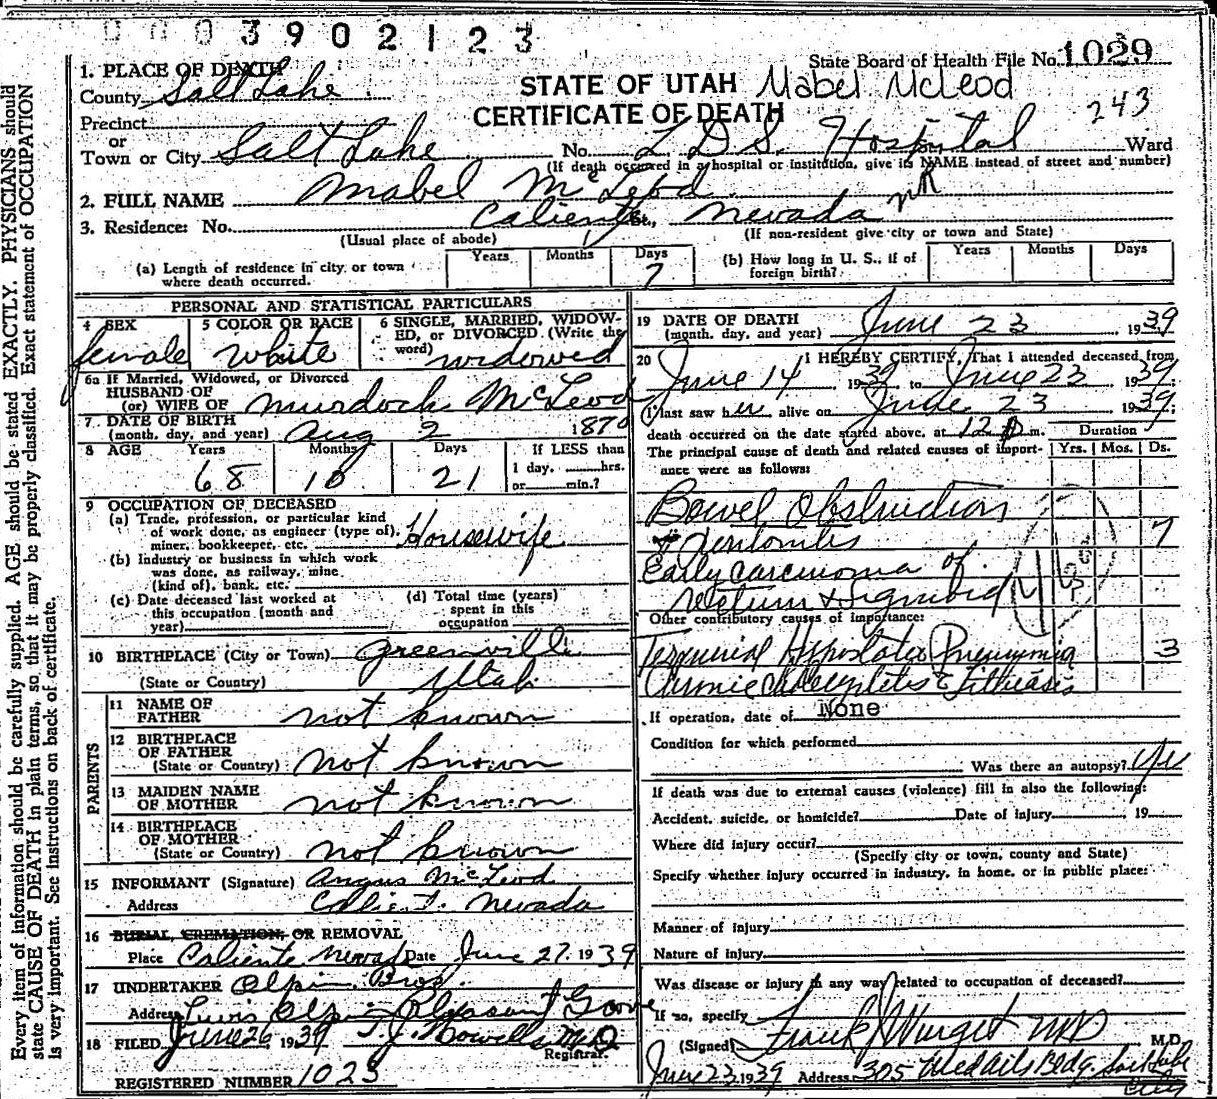 0003902123
State Board of Health File No. 1029
STATE OF UTAH Mabel McLeod
CERTIFICATE OF DEATH 243
1. PLACE OF DEATH
County Salt Lake
Precinct
or
Town or City Salt Lake No. L.D.S. Hospital Ward
(If death occurred in a hospital or institution, give its NAME instead of street and number)
2. FULL NAME Mabel McLeod
3. Residence: No. Caliente St., Nevada NR
(Usual place of abode) (If non-resident give city or town and State)
(a) Length of residence in city or town where death occurred. Years Months Days 7
(b) How long in U. S., if of foreign birth? Years Months Days
PERSONAL AND STATISTICAL PARTICULARS
4 SEX female
5 COLOR OR RACE White
6 SINGLE, MARRIED, WIDOWED, or DIVORCED (Write the word) widowed
6a If Married, Widowed, or Divorced
HUSBAND OF
(or) WIFE OF Murdock McLeod
7 DATE OF BIRTH
(month, day, and year) Aug 2 1870
8 AGE Years 68 Months 10 Days 21 If LESS than
1 day, hrs.
or min.?
9 OCCUPATION OF DECEASED
(a) Trade, profession, or particular kind
of work done, as engineer (type of),
miner, bookkeeper, etc. Housewife
(b) Industry or business in which work
was done, as railway, mine
(kind of), bank, etc.
(c) Date deceased last worked at
this occupation (month and
year)
(d) Total time (years)
spent in this
occupation
10 BIRTHPLACE (City or Town) Greenville
(State or Country) Utah
PARENTS
11 NAME OF
FATHER not known
12 BIRTHPLACE
OF FATHER
(State or Country) not known
13 MAIDEN NAME
OF MOTHER not known
14 BIRTHPLACE
OF MOTHER
(State or Country) not known
15 INFORMANT (Signature) Angus McLeod
Address Nevada
16 BURIAL, CREMATION, OR REMOVAL
Place Caliente Nevada Date June 27, 1939
17 UNDERTAKER Olpin Bros.
Address Olpin Pleasant Grove
18 FILED June 26 1939 T. J. Howells M.D.
Registrar.
REGISTERED NUMBER 1023
19 DATE OF DEATH
(month, day, and year) June 23 1939
20 I HEREBY CERTIFY, That I attended deceased from
June 14 1939 to June 23 1939
I last saw her alive on June 23 1939;
death occurred on the date stated above, at 12 p m. Duration
The principal cause of death and related causes of importance were as follows: Yrs. Mos. Ds.
Bowel Obstruction
7
Early carcinoma of
Sigmoid
Other contributory causes of importance:
Terminal Hypostatic Pneumonia 3
Chronic
If operation, date of None
Condition for which performed
Was there an autopsy? Yes
If death was due to external causes (violence) fill in also the following:
Accident, suicide, or homicide? Date of injury , 19
Where did injury occur?
(Specify city or town, county and State)
Specify whether injury occurred in industry, in home, or in public place:
Manner of injury
Nature of injury
Was disease or injury in any way related to occupation of deceased?
If so, specify
(Signed) Frank J MD M.D.
June 23, 1939 Address 305 Bldg. Salt Lake
City
Every item of information should be carefully supplied. AGE should be stated EXACTLY. PHYSICIANS should
state CAUSE OF DEATH in plain terms, so that it may be properly classified. Exact statement of OCCUPATION
is very important. See instructions on back of certificate.